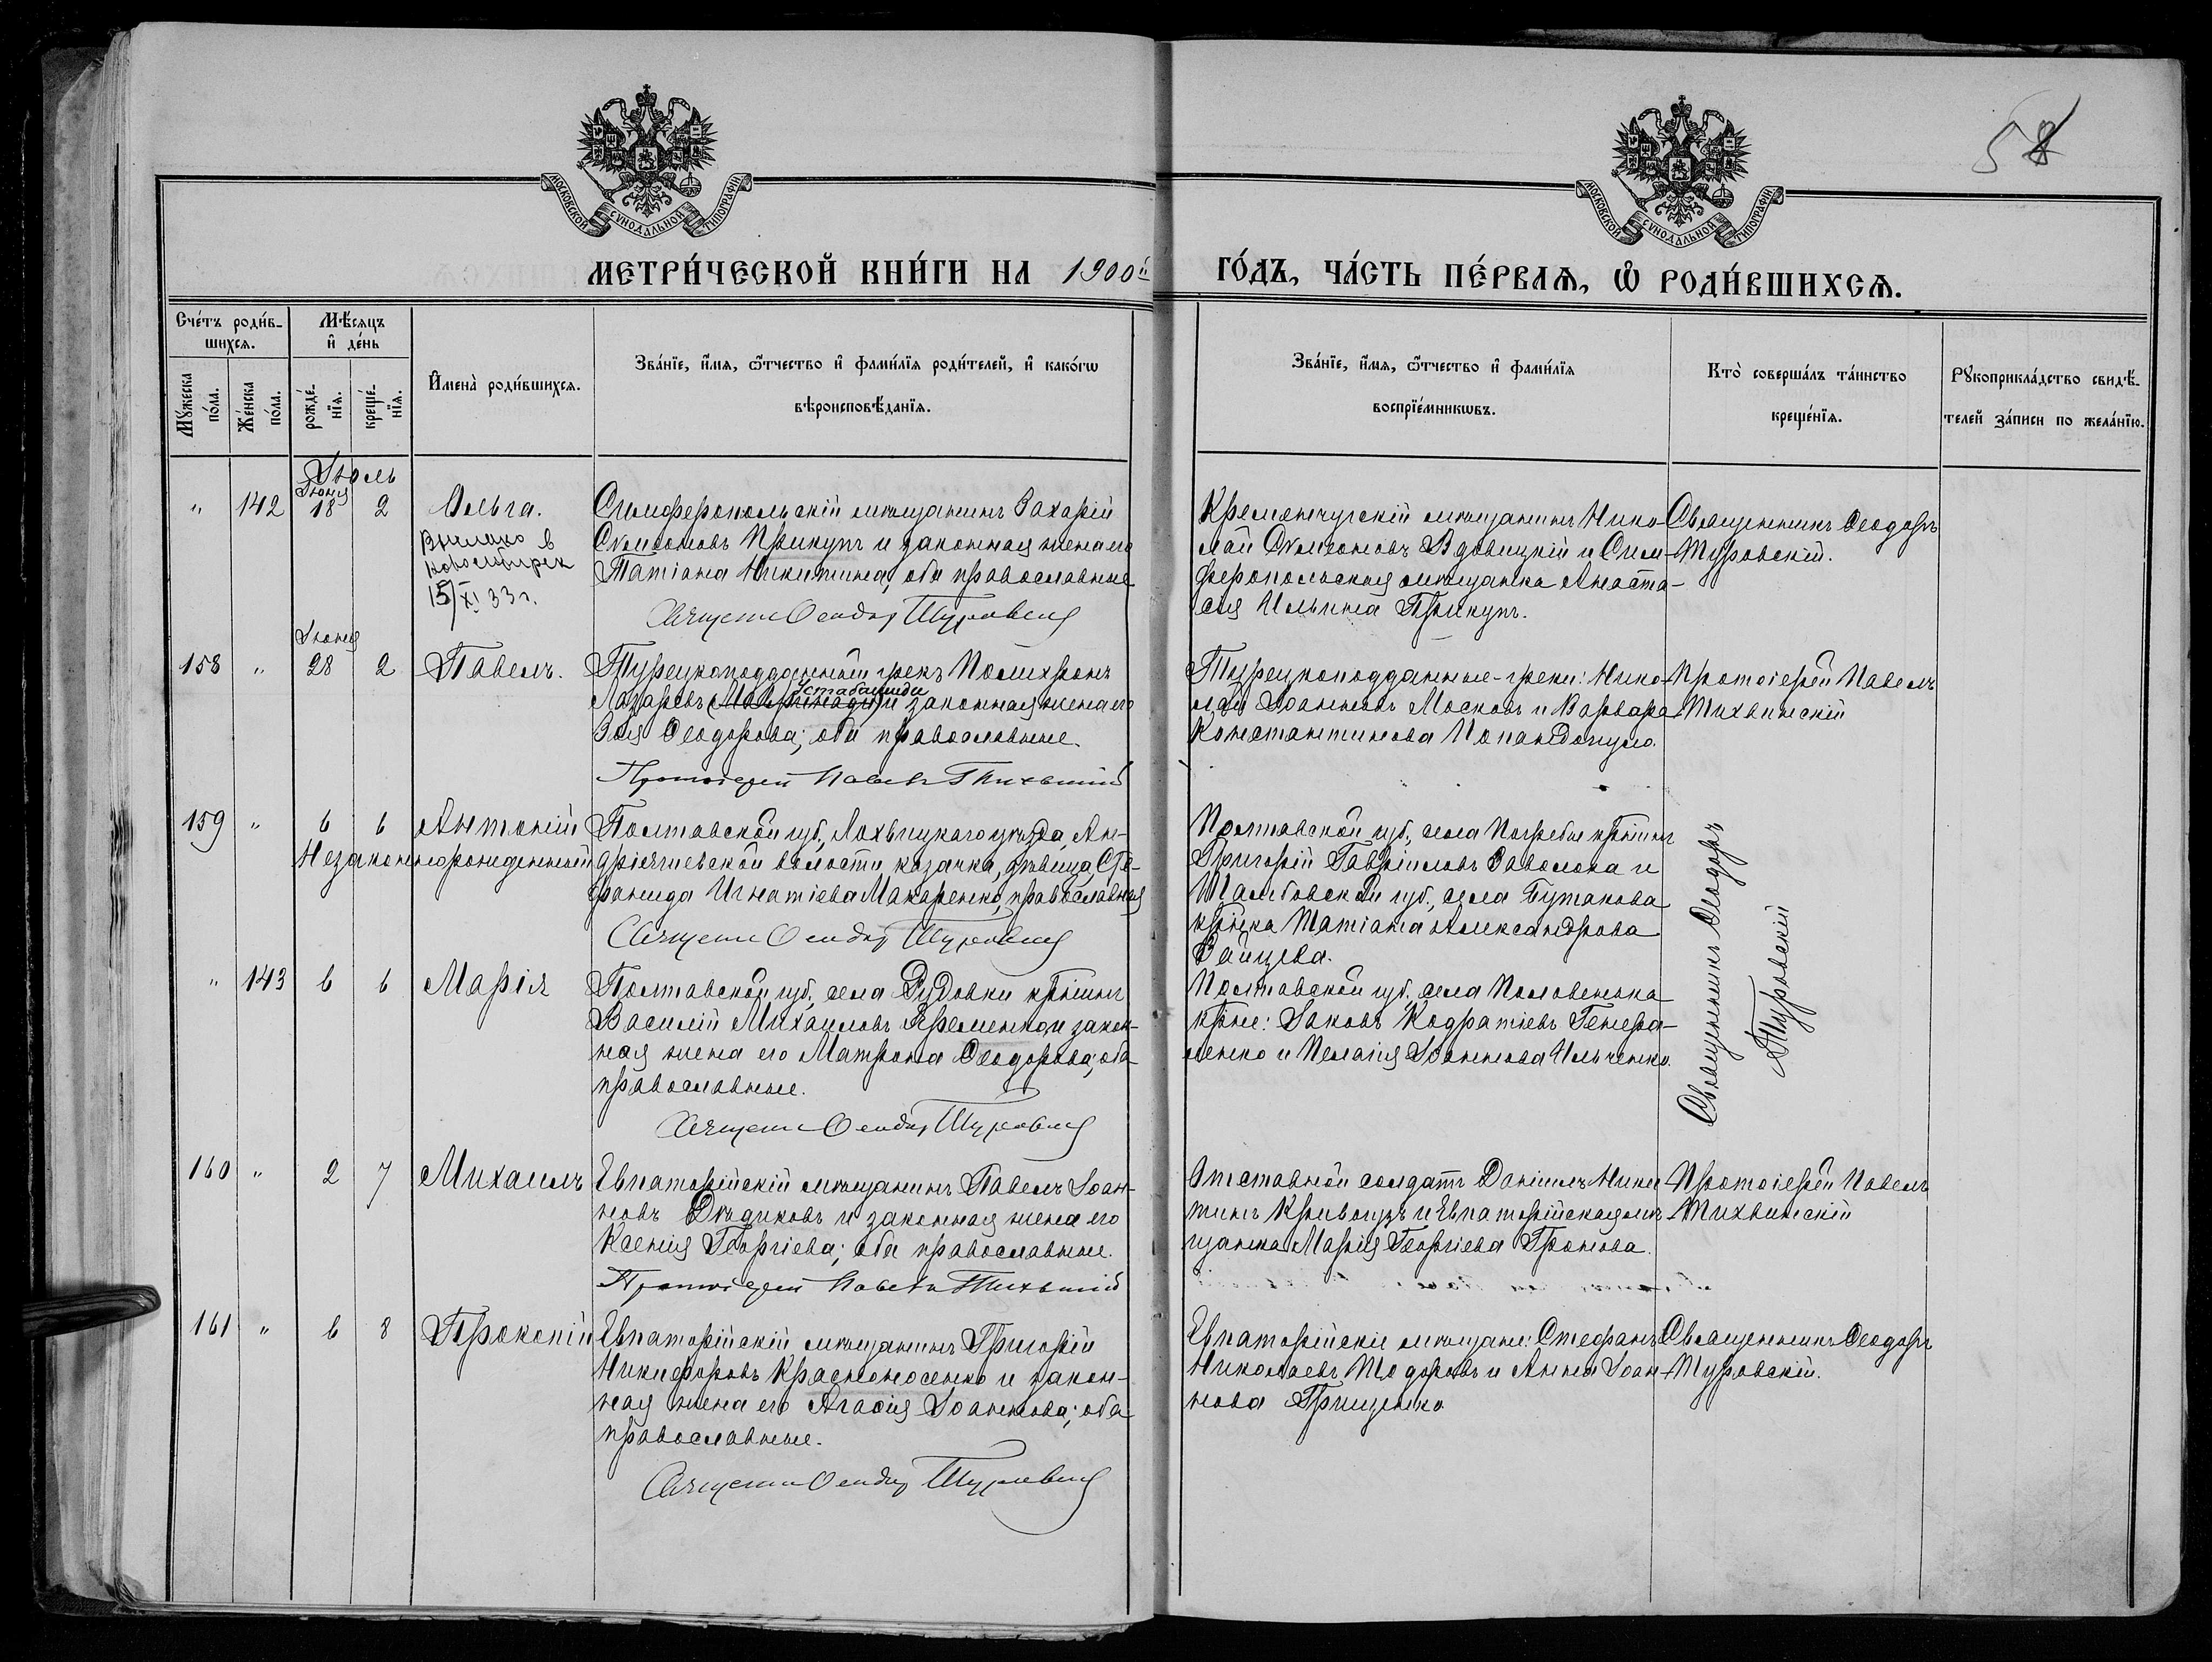 58
МОСКОВСКОЙ СѴНОДАЛЬНОЙ ТИПОГРАФІИ
МОСКОВСКОЙ СѴНОДАЛЬНОЙ ТИПОГРАФІИ
МЕТРИ́ЧЕСКОЙ КНИ́ГИ НА 1900й ГО́ДЪ, ЧА́СТЬ ПЕ́РВАѦ, Ѽ РОДИ́ВШИХСѦ.
Сче́тъ роди́в-
шихсѧ.
Мѣ́сѧцъ
и҆ де́нь
Мꙋ́жеска
по́ла.
Же́нска
по́ла.
рожде́-
нїѧ.
креще́-
нїѧ.
И҆мена̀ роди́вшихсѧ.
Зва́нїе, и҆́мѧ, ѻ҆́тчество и҆ фами́лїѧ роди́телей, и҆ како́гѡ
вѣроисповѣ́данїѧ.
Зва́нїе, и҆́мѧ, ѻ҆́тчество и҆ фами́лїѧ
воспрїе́мникѡвъ.
Кто̀ соверша́лъ та́инство
креще́нїѧ.
Рꙋкоприкла́дство свидѣ́-
телей за́писи по жела́нїю.
Іюль
Іюня
" 142 18 2 Ольга.
Выслано в
Новосибирск
15/XI 33 г.
Симферопольскій мѣщанинъ Захарій
Симеоновъ Прикупъ и законная жена его
Татіана Никитина, оба православные
Священникъ Ѳеодоръ Туровскій
Кременчугскій мѣщанинъ Нико-
лай Симеоновъ Вдовицкій и Сим-
феропольская мѣщанка Анаста-
сія Ильина Прикупъ.
Священникъ Ѳеодоръ
Туровскій.
Іюня
158 " 28 2 Павелъ.
Турецкоподданный грекъ Полихронъ
Устабашиди
Лазаревъ и законная жена его
Зоя Ѳеодорова; оба православные.
Протоіерей Павелъ Тихвинскій
Турецкоподданные-греки: Нико-
лай Іоанновъ Московъ и Варвара
Константинова Попандопуло.
Протоіерей Павелъ
Тихвинскій
159 " 6 6 Антоній
Незаконнорожденный
Полтавской губ., Лохвицкаго уѣзда, Ан-
дріяшевской волости, казачка, дѣвица, Сте-
фанида Игнатіева Макаренко, православная
Священникъ Ѳеодоръ Туровскій
Полтавской губ., села Погребы кр҃нинъ
Григорій Гавріиловъ Заволока и
Тамбовской губ., села Бутакова
кр҃нка Татіана Александрова
Зайцева.
Священникъ Ѳеодоръ
Туровскій
" 143 6 6 Марія
Полтавской губ., села Рудовки кр҃нинъ
Василій Михаиловъ Яременко и закон-
ная жена его Матрона Ѳеодорова; оба
православные.
Священникъ Ѳеодоръ Туровскій
Полтавской губ., села Половенька
кр҃не: Іаковъ Кодратіевъ Генера-
ленко и Пелагія Іоаннова Ильченко.
160 " 2 7 Михаилъ
Евпаторійскій мѣщанинъ Павелъ Іоан-
новъ Дѣдиковъ и законная жена его
Ксенія Георгіева; оба православные.
Протоіерей Павелъ Тихвинскій
Отставной солдатъ Даніилъ Ники-
тинъ Кривоузъ и Евпаторійская мѣ-
щанка Марія Георгіева Громова.
Протоіерей Павелъ
Тихвинскій
161 " 6 8 Прокопій
Евпаторійскій мѣщанинъ Григорій
Никифоровъ Красноносенко и закон-
ная жена его Агаѳія Іоаннова; оба
православные.
Священникъ Ѳеодоръ Туровскій
Евпаторійскіе мѣщане: Стефанъ
Николаевъ Тодоровъ и Анна Іоан-
нова Грищенко
Священникъ Ѳеодоръ
Туровскій.